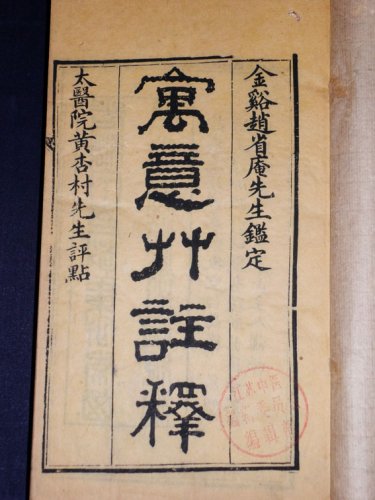 金谿趙省庵先生鑑定
寓意艸註釋
太醫院黃杏村先生評點